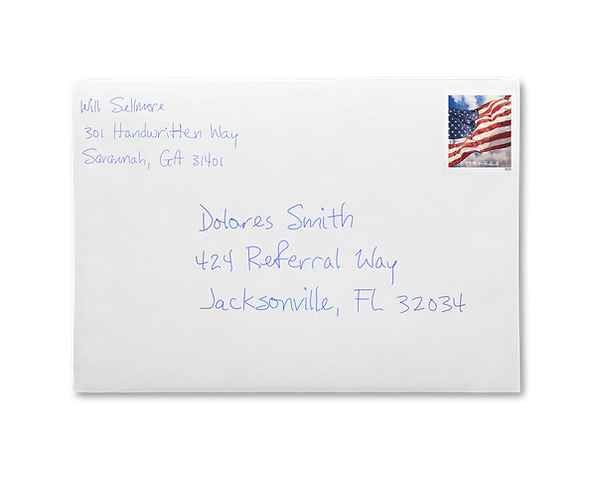 Will Sellmore
301 Handwritten Way
Savannah, GA 31401
FOREVER
Dolores Smith
424 Referral Way
Jacksonville, FL 32034